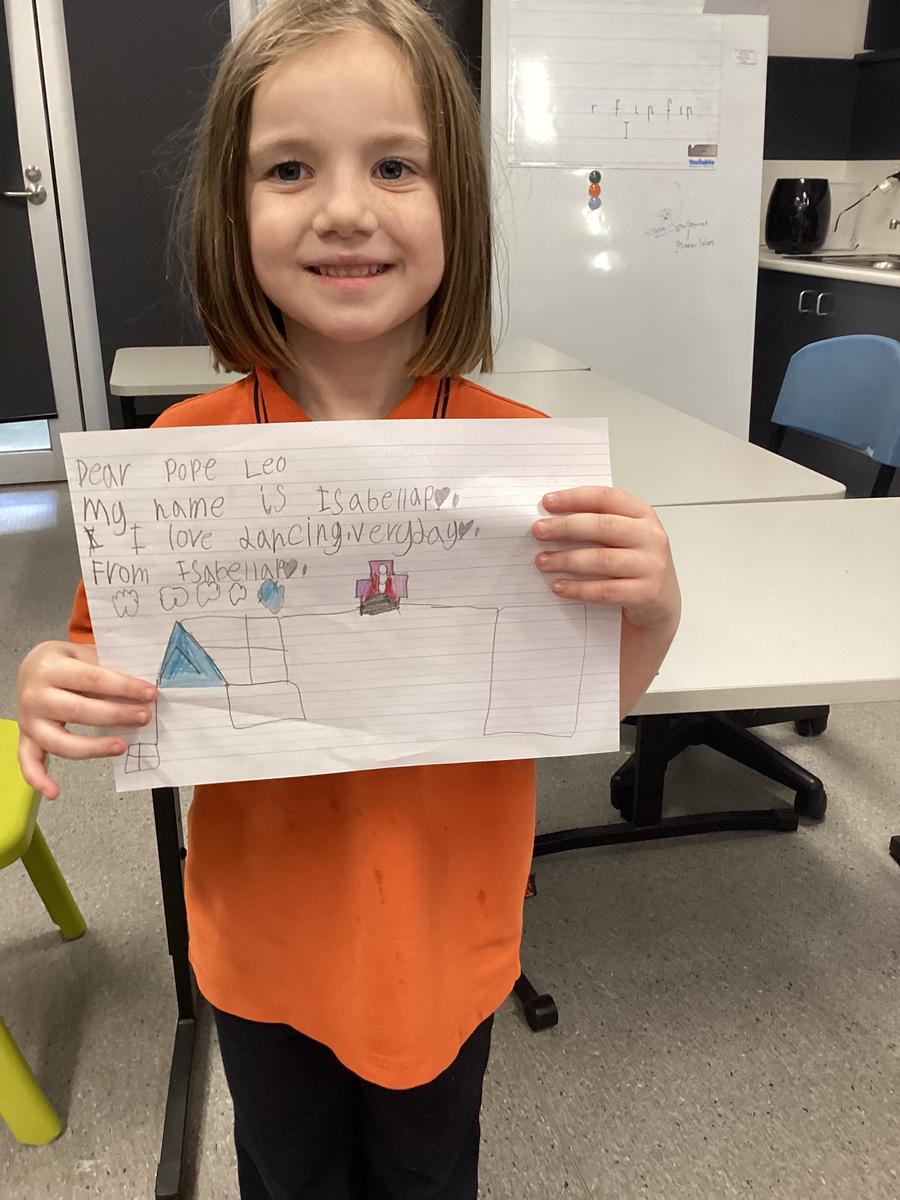 Dear Pope Leo
My name is IsabellaP♥.
I I love dancing.veryday♥.
From IsabellaP♥.
r f i n f i n
I